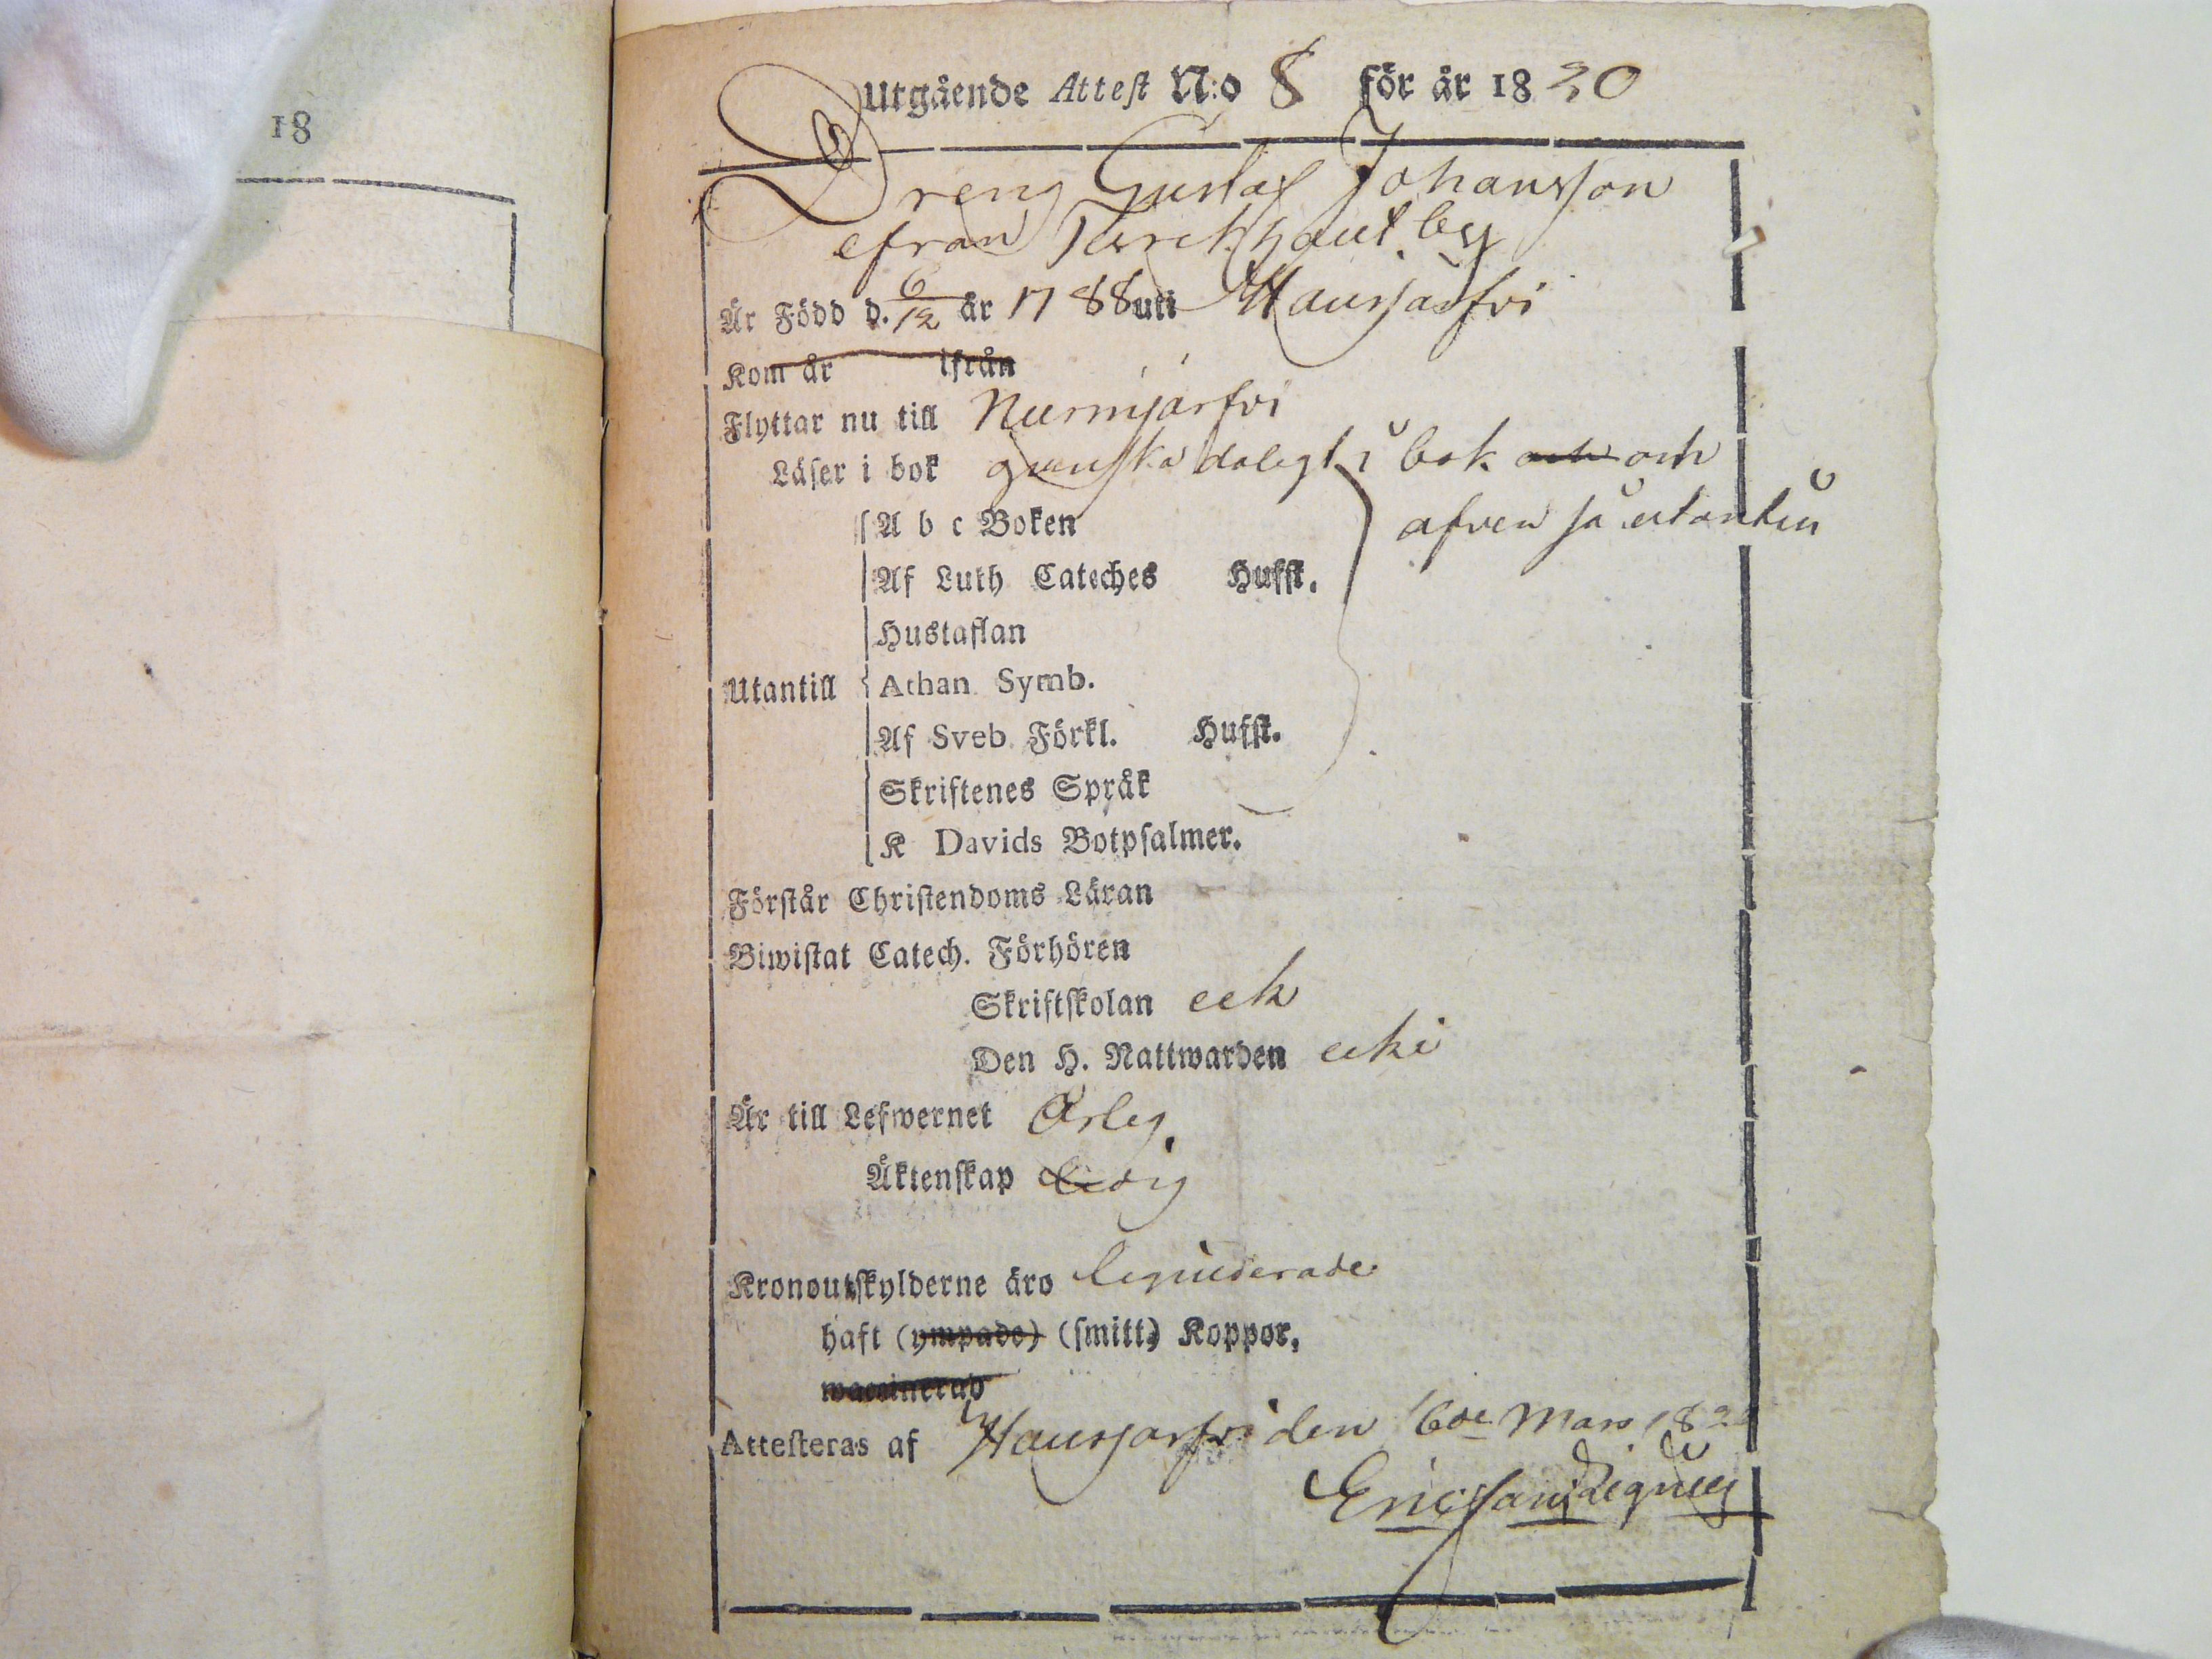 18
Utgående Attest N:o 8 för år 1820
Dreng Gustaf Johansson
efrån Turckhaut by
Är Född d. 6/12 år 1788 uti Hausjärfvi
Kom år ifrån
Flyttar nu till Nurmjärfvi
Läser i bok ganska dåligt i bok och och
A b c Boken afven så utantill
Af Luth Cateches Hufst.
Hustaflan
Utantill Athan Symb.
Af Sveb Förkl. Hufst.
Skriftenes Språk
K Davids Botpsalmer.
Förstår Christendoms Läran
Biwistat Catech. Förhören
Skriftskolan eck
Den H. Nattwarden ecki
Är till Lefwernet Ärleg.
Äktenskap Ledig
Kronoutskylderne äro liquiderade
haft (ympade) (smitt) Koppor,
waccinerad
Attesteras af Hausjärfvi den 6de Mars 182
Eric